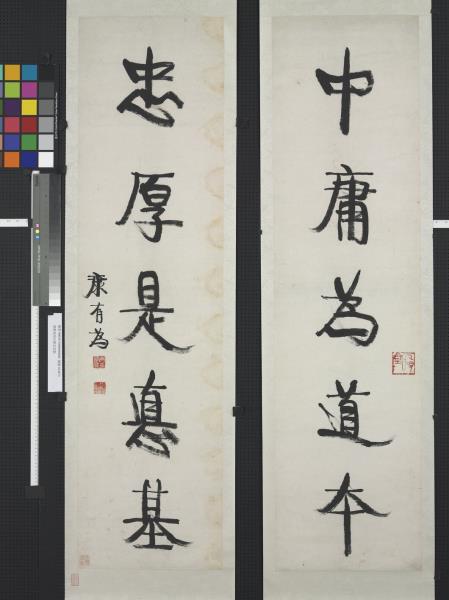 中庸為道本
忠厚是惪基
康有為